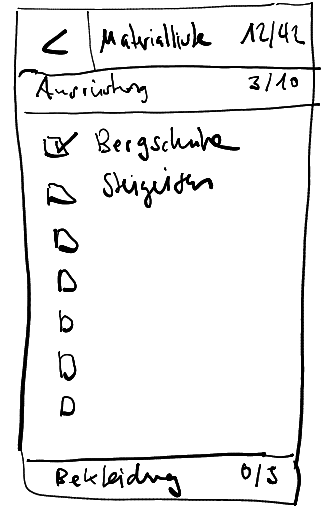 < Materialliste 12/42
Ausrüstung 3/10
Bergschuhe
Steigeisen
Bekleidung 0/5